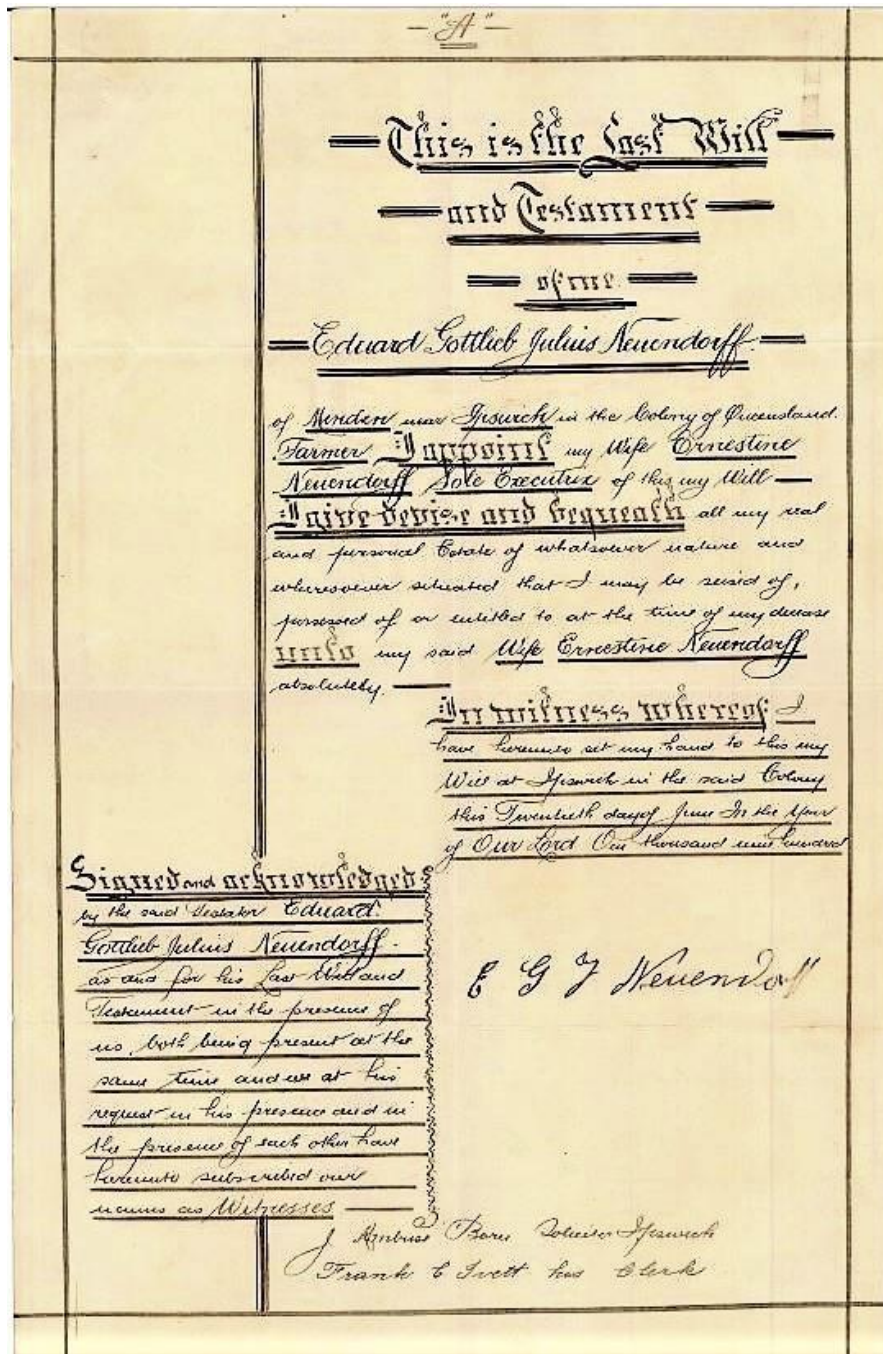 - "A" -
This is the Last Will
and Testament
of me
Eduard Gottlieb Julius Neuendorff.
of Minden near Ipswich in the Colony of Queensland.
Farmer I appoint my Wife Ernestine
Neuendorff Sole Executrix of this my Will
I give devise and bequeath all my real
and personal Estate of whatsoever nature and
wheresoever situated that I may be seised of,
possessed of or entitled to at the time of my decease
unto my said Wife Ernestine Neuendorff
absolutely.
In witness whereof I
have hereunto set my hand to this my
Will at Ipswich in the said Colony
this Twentieth day of June In the Year
of Our Lord One thousand nine hundred
Signed and acknowledged
by the said Testator Eduard
Gottlieb Julius Neuendorff.
as and for his Last Will and
Testament in the presence of
us, both being present at the
same time and we at his
request in his presence and in
the presence of each other have
hereunto subscribed our
names as Witnesses
E G J Neuendorff
J Ambrose Solicitor Ipswich
Frank E his Clerk